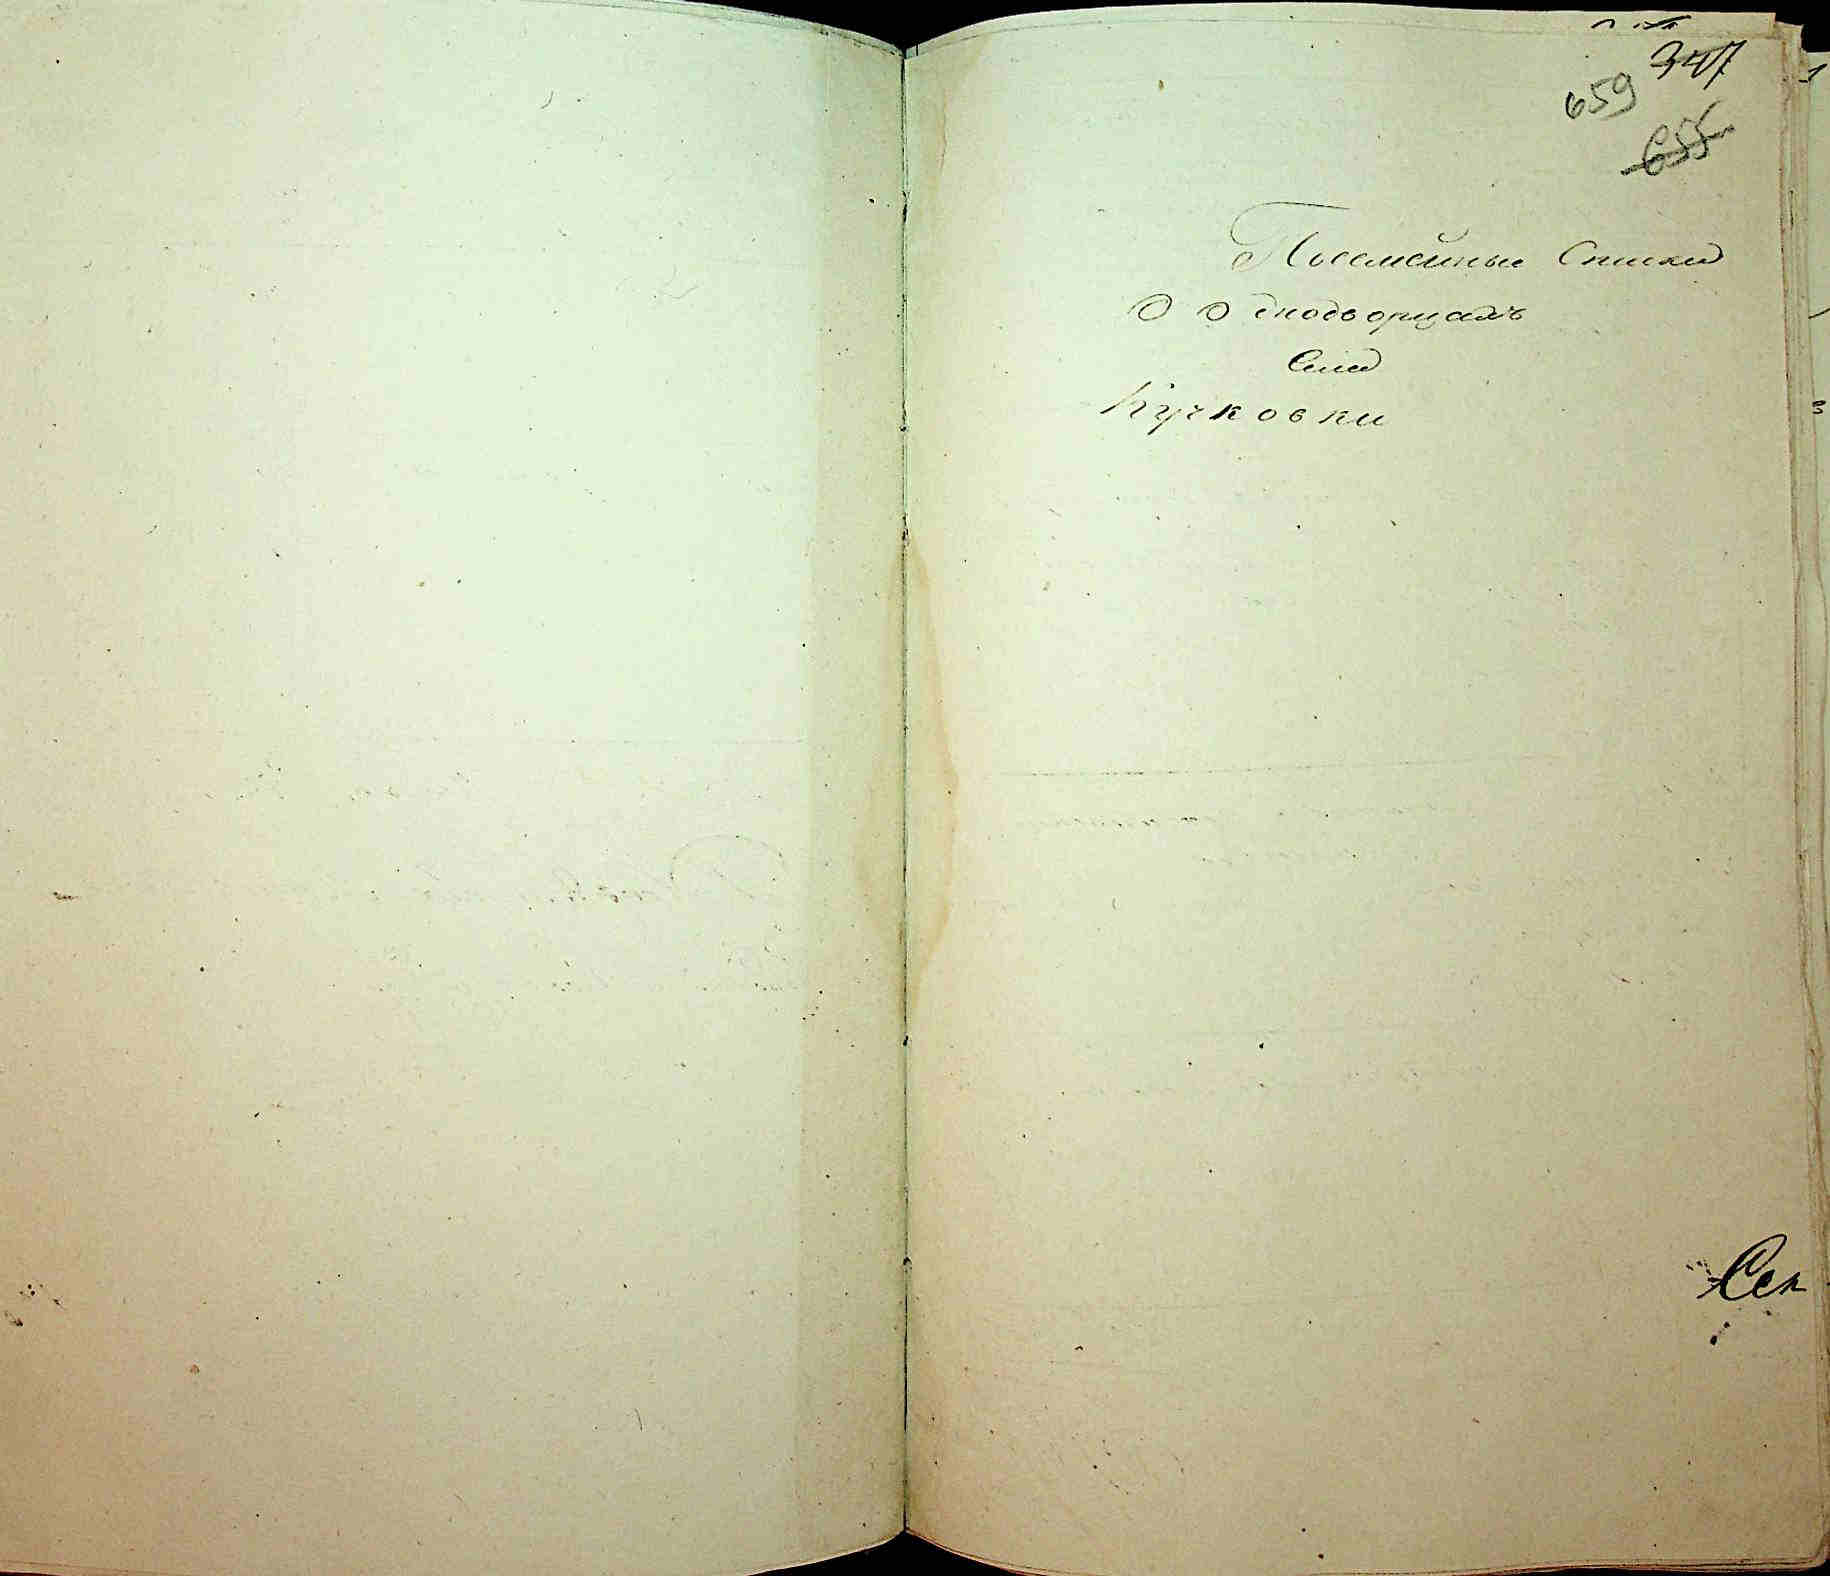 347
659
655
Посемейные Списки
О Однодворцахъ
Села
Кучковки
Сек